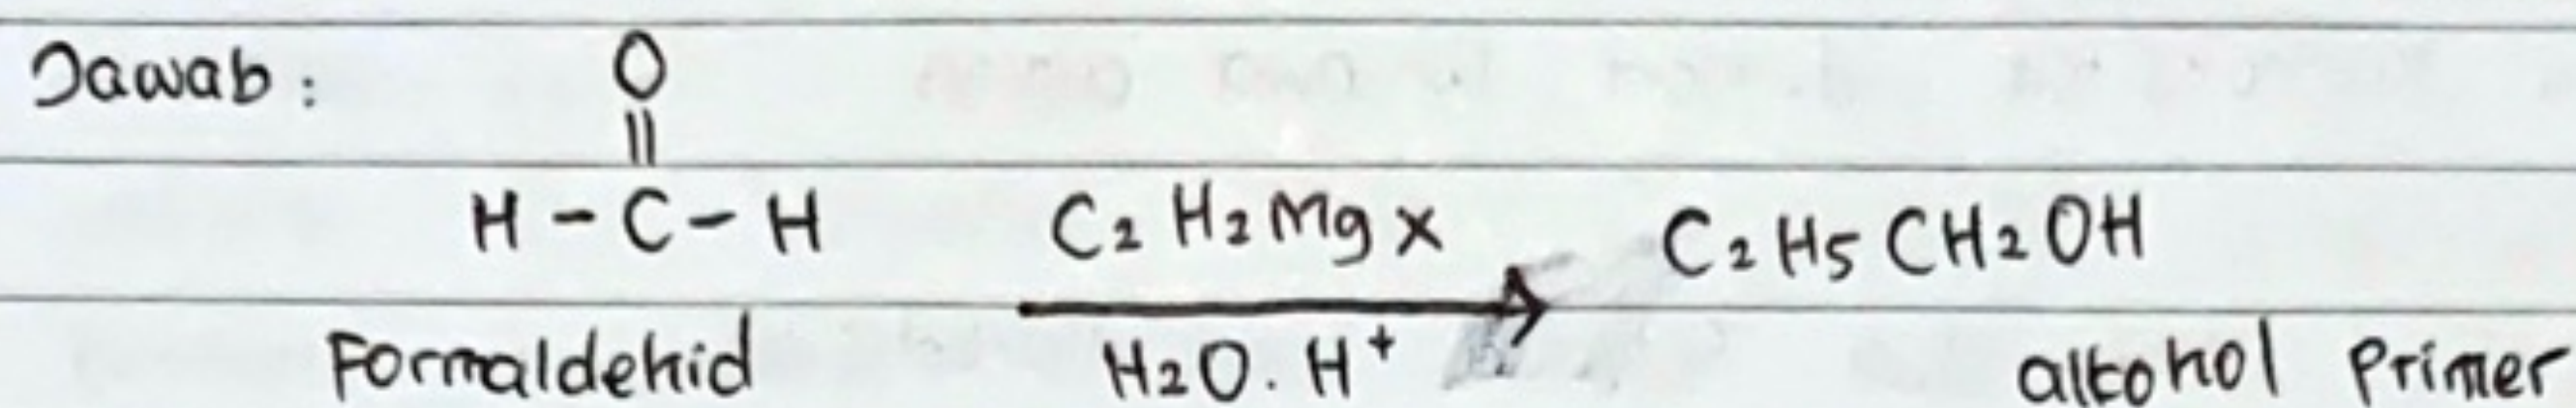 Jawab : O
||
H - C - H C₂H₂MgX C₂H₅CH₂OH
Formaldehid H₂O . H⁺ alkohol Primer